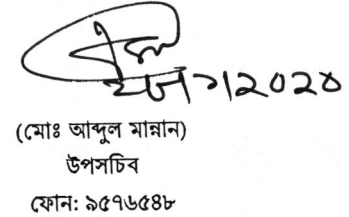 (মোঃ আব্দুল মান্নান)
উপসচিব
ফোন: ৯৫৭৬৫৪৮